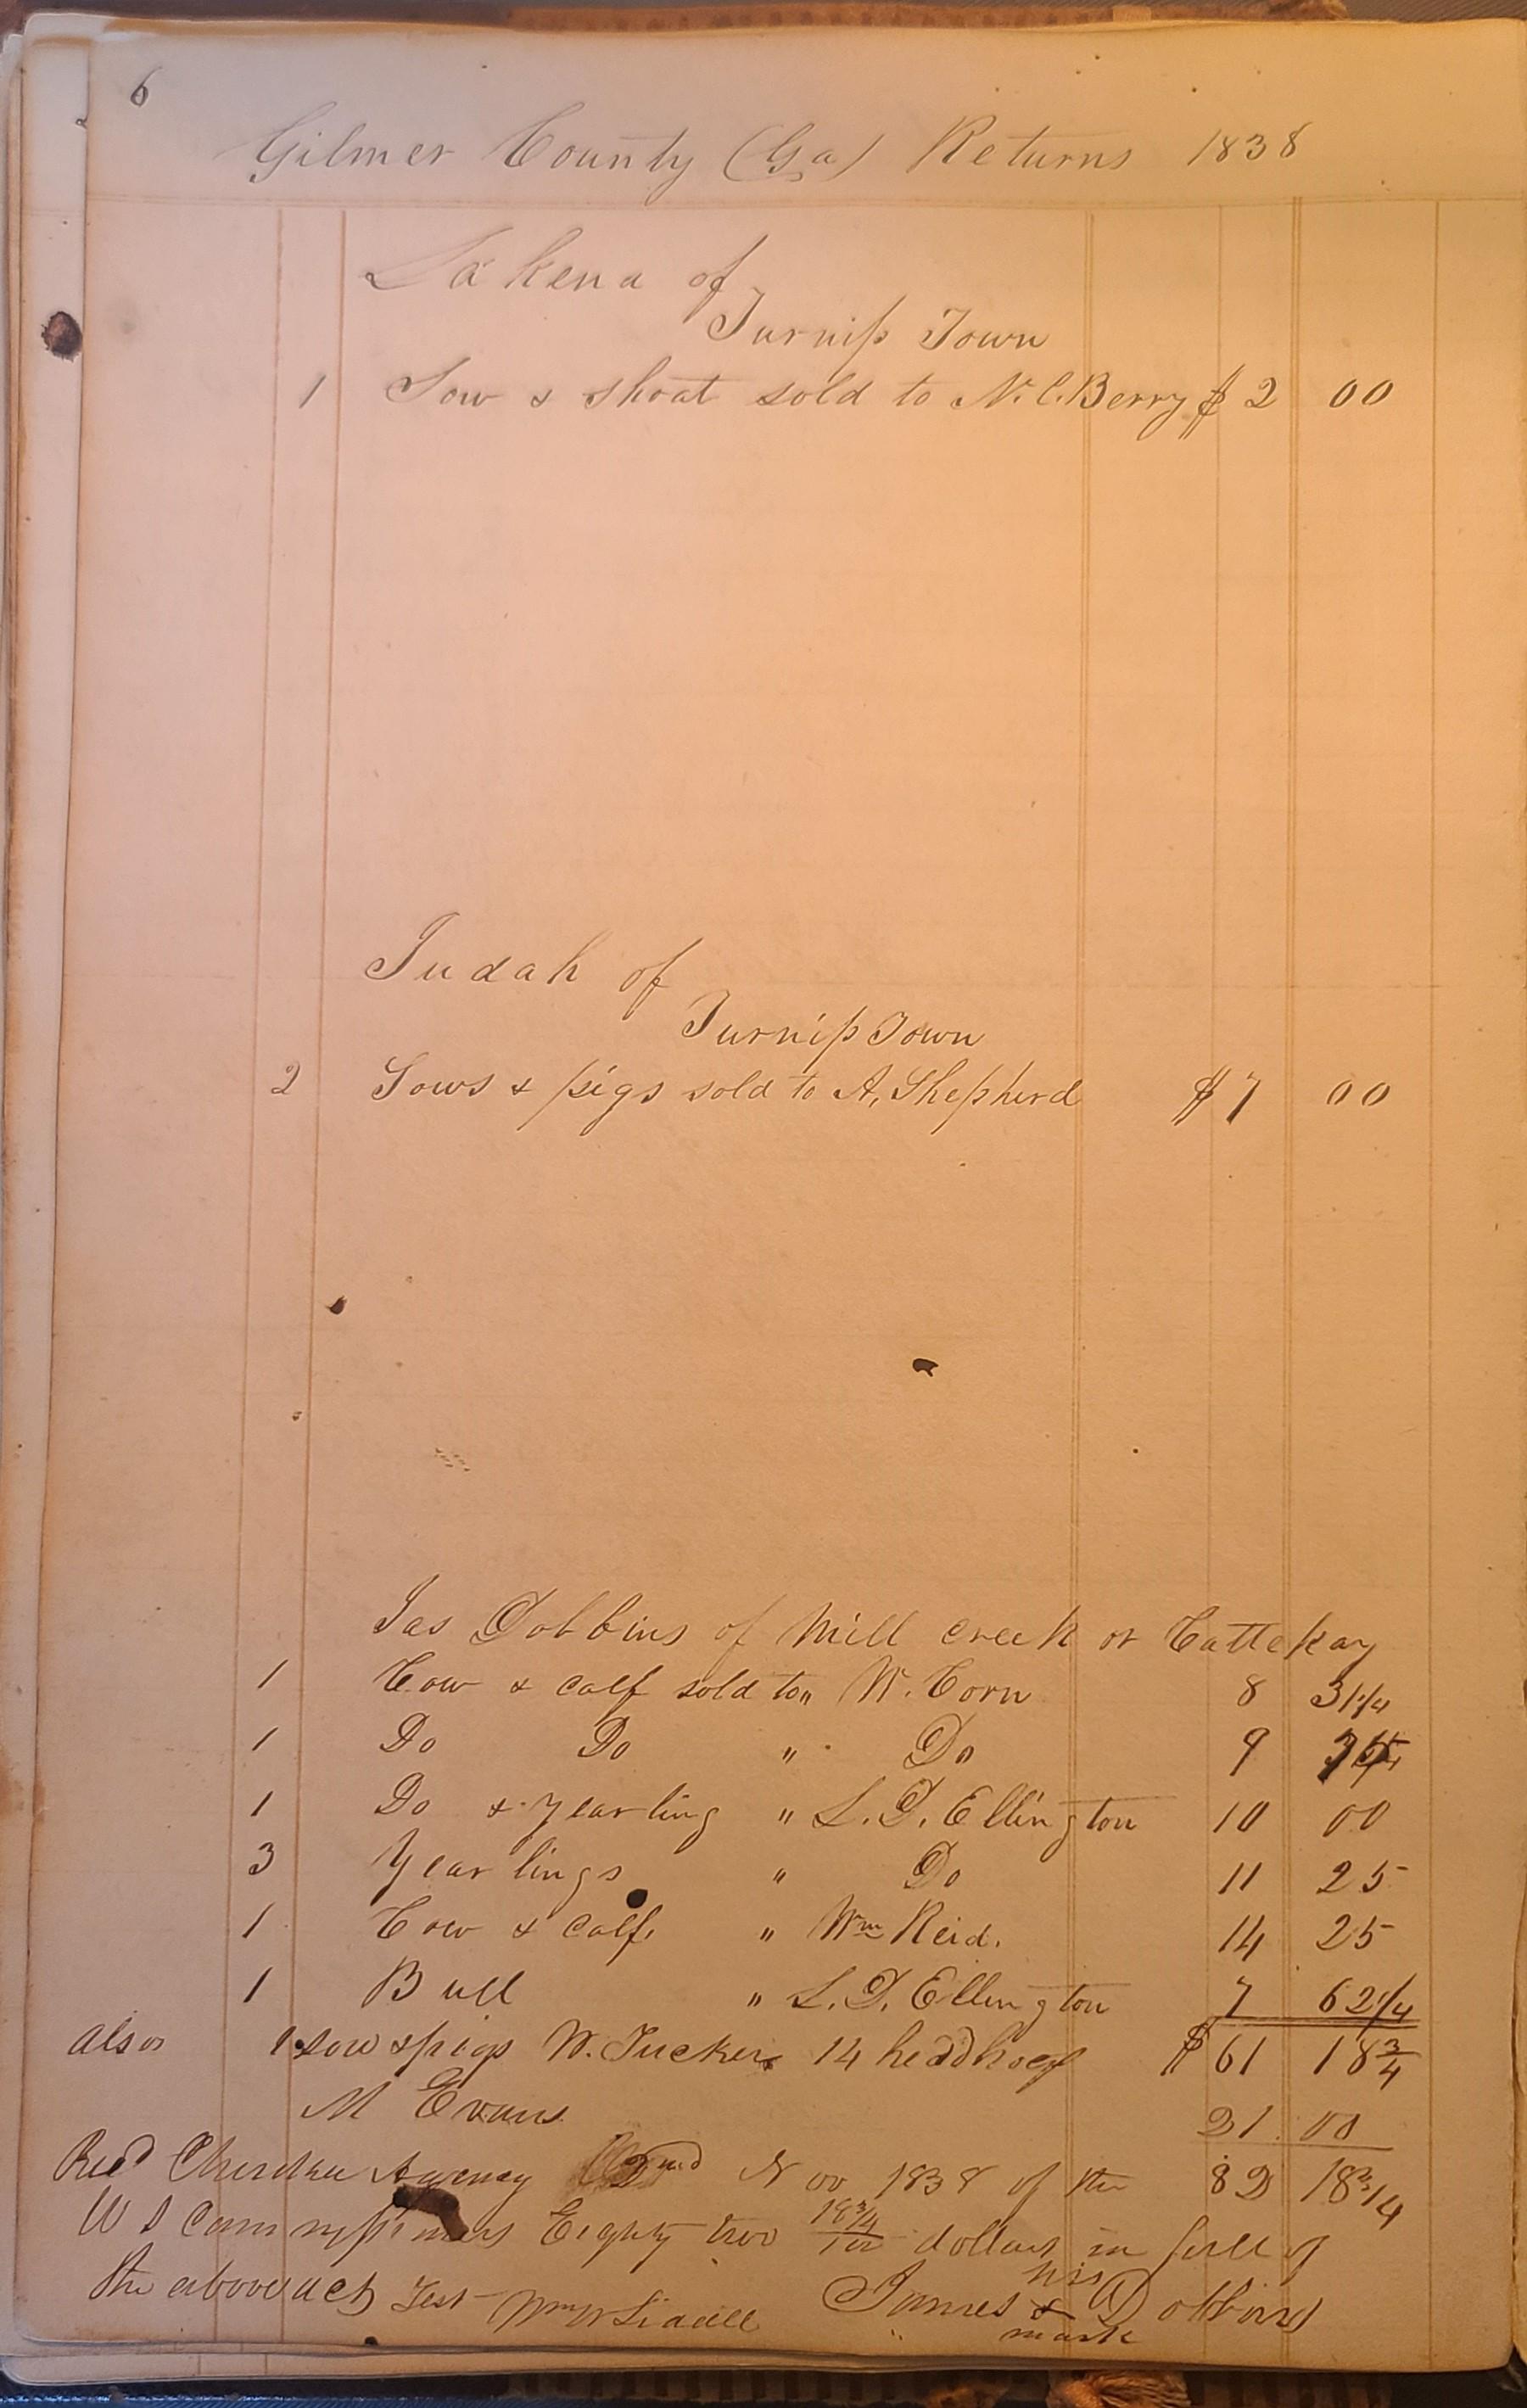 6
Gilmer County (Ga) Returns 1838
La kena of
Turnip Town
1 Sow & Shoat sold to N. C. Berry $ 2 00
Judah of
Turnip Town
2 Sows & pigs sold to A, Shepherd $ 7 00
Jas Dobbins of Mill creek or Cattekay
1 Cow & calf sold to " W. Corn 8 31 1/4
1 Do Do " Do 9
1 Do & yearling " L. D. Ellington 10 00
3 Yearlings " Do 11 25
1 Cow & calf, " Wm Reid. 14 25
1 Bull " L. D. Ellington 7 62 1/4
also 1 sow & pigs W. Tucker 14 head hogs $ 61 18 3/4
M Evans 21 00
Recd Cherokee Agency Nov 1838 of the 82 18 3/4
U S Commissioners Eighty two 18 3/4 / 100 dollars in full of
the above act Test Wm W Liddell James his x mark Dobbins